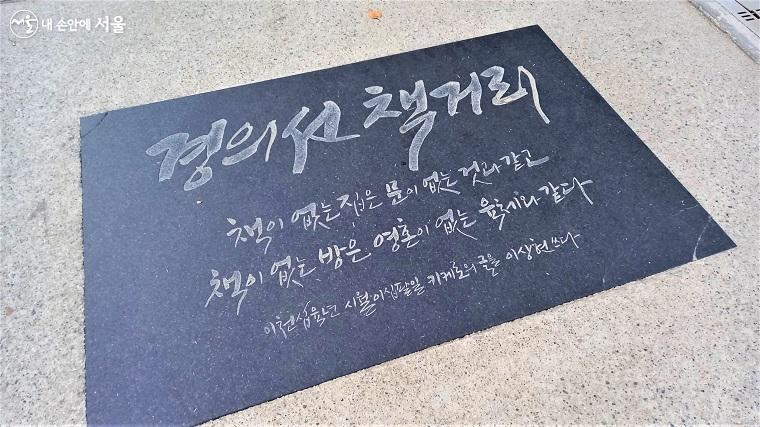 서울 내 손안에 서울
경의선 책거리
책이 없는 집은 문이 없는 것과 같고
책이 없는 방은 영혼이 없는 육체와 같다
이천십육년 시월이십팔일 키케로의 글을 이상현 쓰다